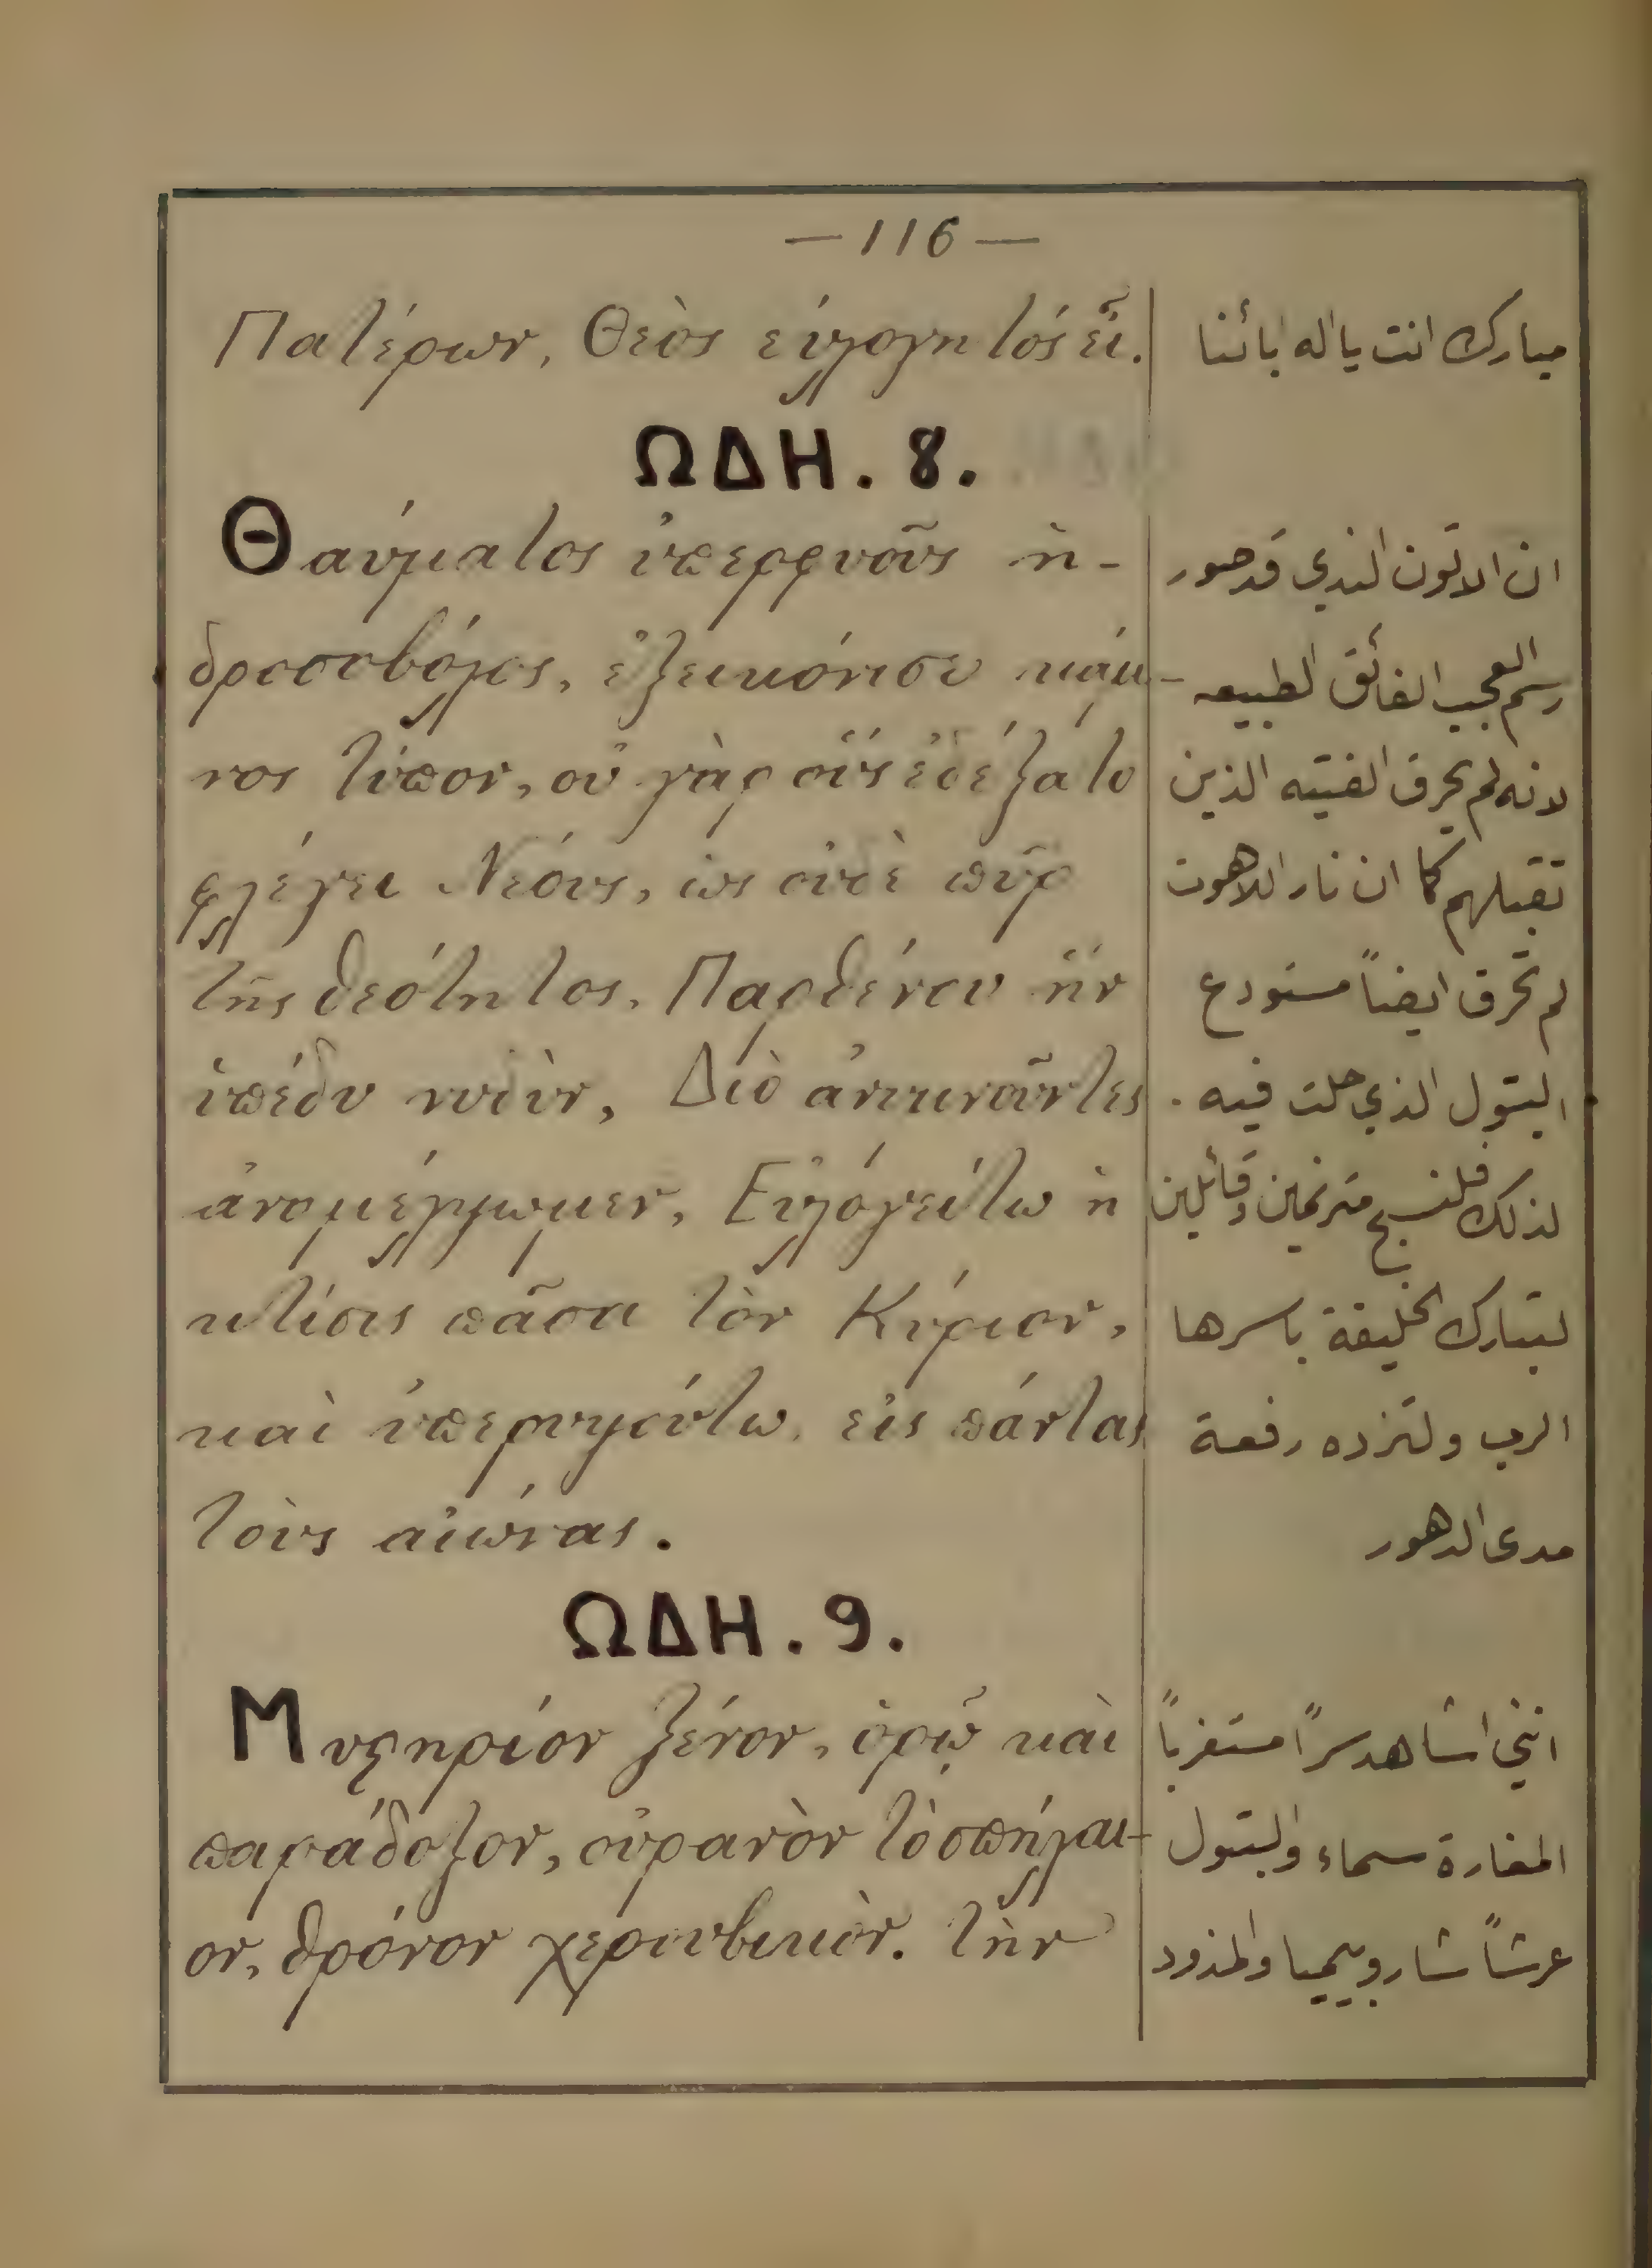 —116—
Πατέρων, Θεὸς εὐλογητός εἶ.
مبارك انت يا اله ابائنا
ΩΔΗ. 8.
Θαύματος ὑπερφυοῦς ἡ-
δροσοβόλος, ἐξεικόνισε κάμι-
νος τύπον, οὐ γὰρ οὓς ἐδέξατο
φλέγει Νέους, ὡς οὐδὲ πῦρ
τῆς θεότητος, Παρθένου ἣν
ὑπέδυ νηδύν, Διὸ ἀνυμνοῦντες
ἀναμέλψωμεν, Εὐλόγείτω ἡ
κτίσις πᾶσα τὸν Κύριον,
καὶ ὑπερυψούτω, εἰς πάντας
τοὺς αἰώνας.
ان الاتون الندي قد صور
رسم العجب الفائق الطبيعه
لانه لم يحرق الفتيه الذين
تقبلهم كما ان نار اللاهوت
لم تحرق ايضاً مستودع
البتول الذي حلت فيه.
لذلك فلنسبح مترنمين وقائلين
لتبارك الخليقة باسرها
الرب ولتزده رفعة
مدى الدهور
ΩΔΗ. 9.
Μυστηρίον ξένον, ὁρῶ καὶ
παράδοξον, οὐρανὸν τὸ σπήλαι-
ον, θρόνον χερουβικὸν. τὴν
انني اشاهد سراً مستغرباً
المغارة سماء والبتول
عرشاً شاروبيميا والمذود